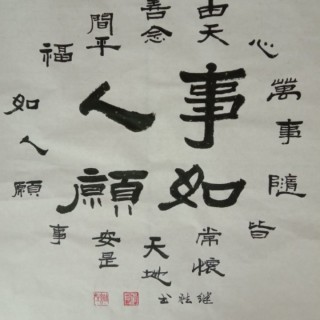 事如
人願
萬事隨
心皆
由天常懷
善念天地
間平安是
福事
如人願